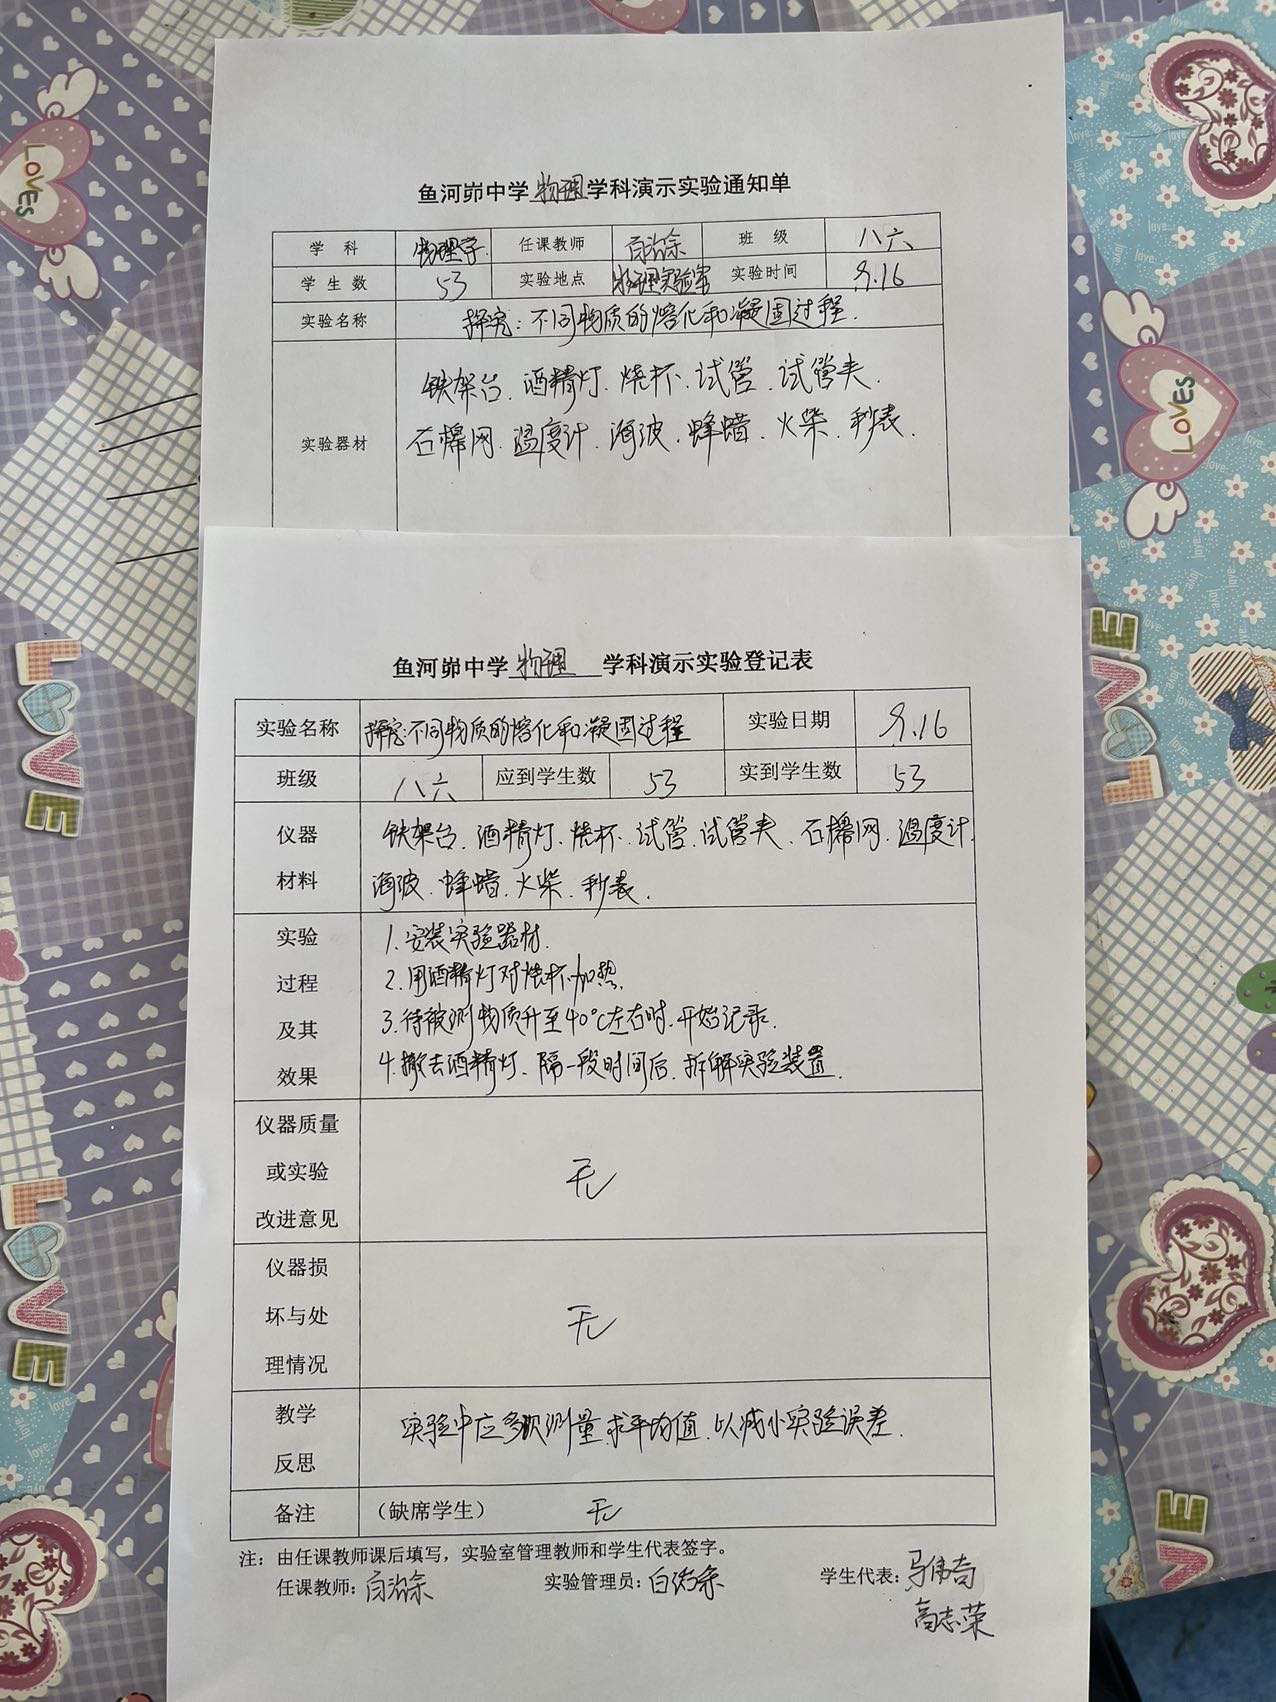 鱼河峁中学 物理 学科演示实验通知单
学 科 物理学 任课教师 白治余 班 级 八六
学 生 数 53 实验地点 物理实验室 实验时间 9.16
实验名称 探究:不同物质的熔化和凝固过程.
铁架台.酒精灯.烧杯.试管.试管夹.
实验器材 石棉网.温度计.海波.蜂蜡.火柴.秒表.
鱼河峁中学 物理 学科演示实验登记表
实验名称 探究:不同物质的熔化和凝固过程 实验日期 9.16
班级 八六 应到学生数 53 实到学生数 53
仪器 铁架台.酒精灯.烧杯.试管.试管夹.石棉网.温度计.
材料 海波.蜂蜡.火柴.秒表.
实验 1.安装实验器材.
过程 2.用酒精灯对烧杯加热.
及其 3.待被测物质升至40°C左右时.开始记录.
效果 4.撤去酒精灯.隔一段时间后.拆解实验装置.
仪器质量
或实验 无
改进意见
仪器损
坏与处 无
理情况
教学 实验中应多次测量.求平均值.以减小实验误差.
反思
备注 (缺席学生) 无
注:由任课教师课后填写,实验室管理教师和学生代表签字。
任课教师: 白治余 实验管理员: 白治余 学生代表: 马伟奇
高志荣
LOVES
LOVES
LOVE
LOVE
LOVE